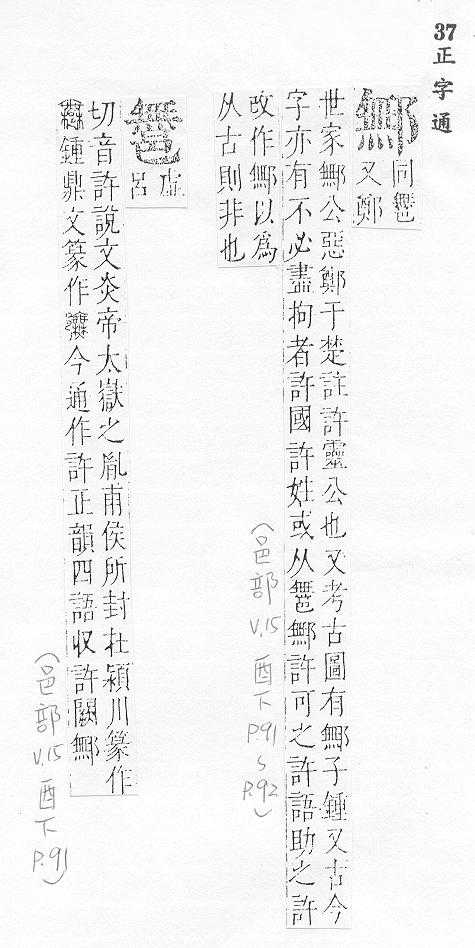 37 正字通
鄦
同
又鄭
世家鄦公惡鄭于楚註許靈公也又考古圖有鄦子鍾又古今
字亦有不必盡拘者許國許姓或从鄦許可之許語助之許
改作鄦以為
从古則非也
(邑部 V.15 酉下 P.91 ~ P.92)
虛
呂
切音許說文炎帝太嶽之胤甫侯所封在潁川篆作
鍾鼎文篆作今通作許正韻四語収許闕鄦
(邑部 V.15 酉下 P.91)